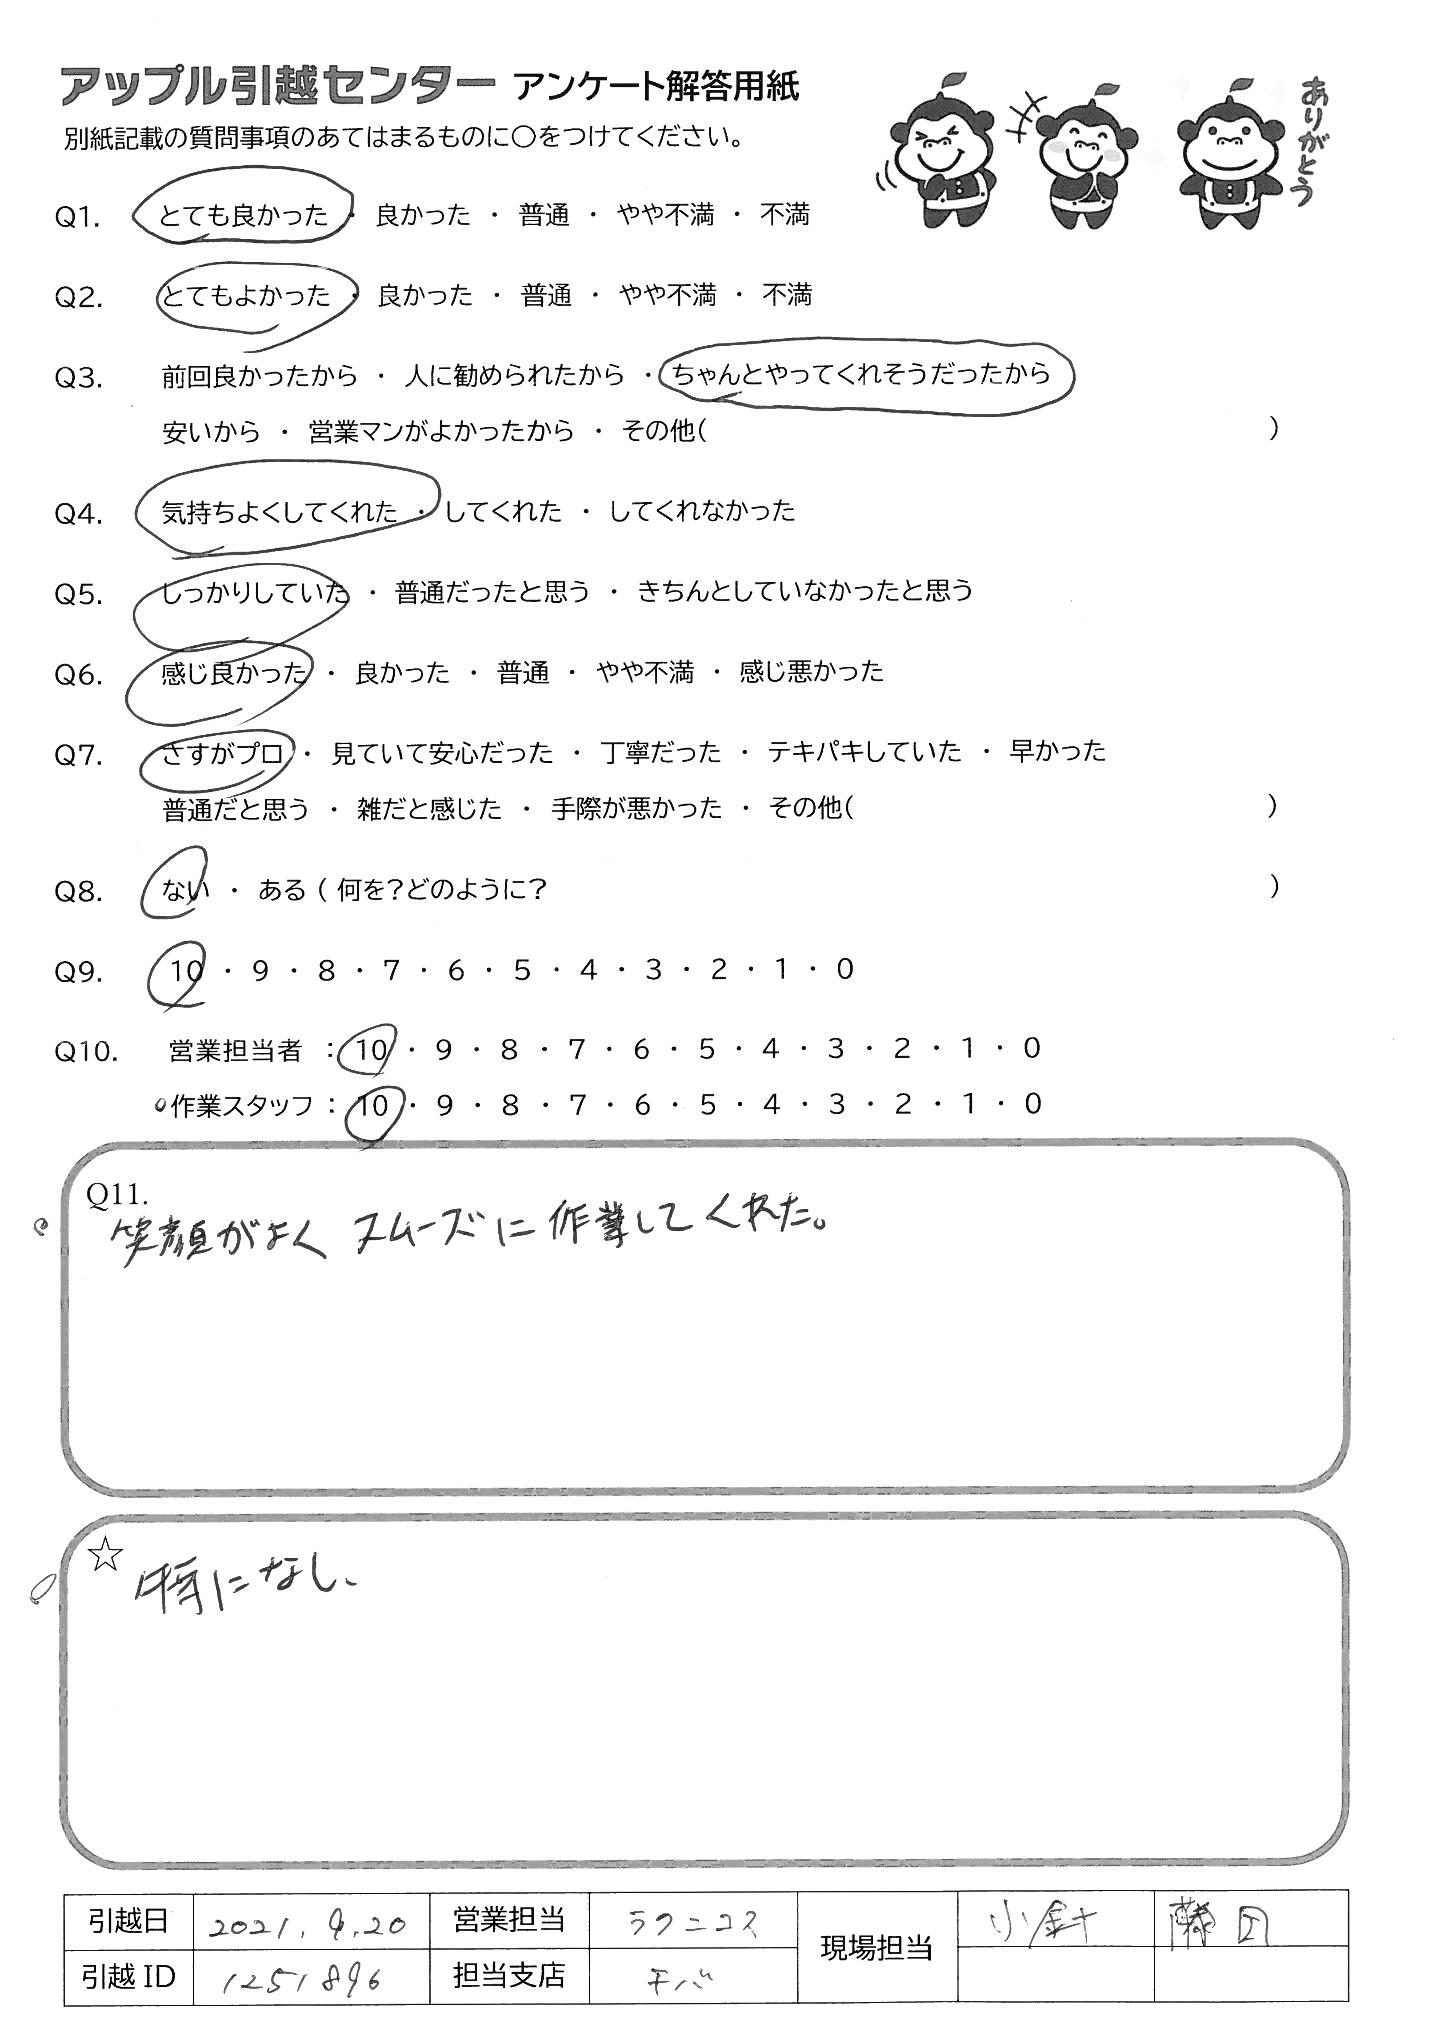 アップル引越センター アンケート解答用紙
別紙記載の質問事項のあてはまるものに〇をつけてください。
ありがとう
Q1. とても良かった ・ 良かった ・ 普通 ・ やや不満 ・ 不満
Q2. とてもよかった ・ 良かった ・ 普通 ・ やや不満 ・ 不満
Q3. 前回良かったから ・ 人に勧められたから ・ ちゃんとやってくれそうだったから
安いから ・ 営業マンがよかったから ・ その他( )
Q4. 気持ちよくしてくれた ・ してくれた ・ してくれなかった
Q5. しっかりしていた ・ 普通だったと思う ・ きちんとしていなかったと思う
Q6. 感じ良かった ・ 良かった ・ 普通 ・ やや不満 ・ 感じ悪かった
Q7. さすがプロ ・ 見ていて安心だった ・ 丁寧だった ・ テキパキしていた ・ 早かった
普通だと思う ・ 雑だと感じた ・ 手際が悪かった ・ その他( )
Q8. ない ・ ある ( 何を?どのように? )
Q9. 10 ・ 9 ・ 8 ・ 7 ・ 6 ・ 5 ・ 4 ・ 3 ・ 2 ・ 1 ・ 0
Q10. 営業担当者 : 10 ・ 9 ・ 8 ・ 7 ・ 6 ・ 5 ・ 4 ・ 3 ・ 2 ・ 1 ・ 0
作業スタッフ : 10 ・ 9 ・ 8 ・ 7 ・ 6 ・ 5 ・ 4 ・ 3 ・ 2 ・ 1 ・ 0
Q11.
笑顔がよく スムーズに作業してくれた。
☆ 特になし、
引越日 2021.9.20 営業担当 ラクニコス 現場担当 小針 藤田
引越ID 1251896 担当支店 チバ